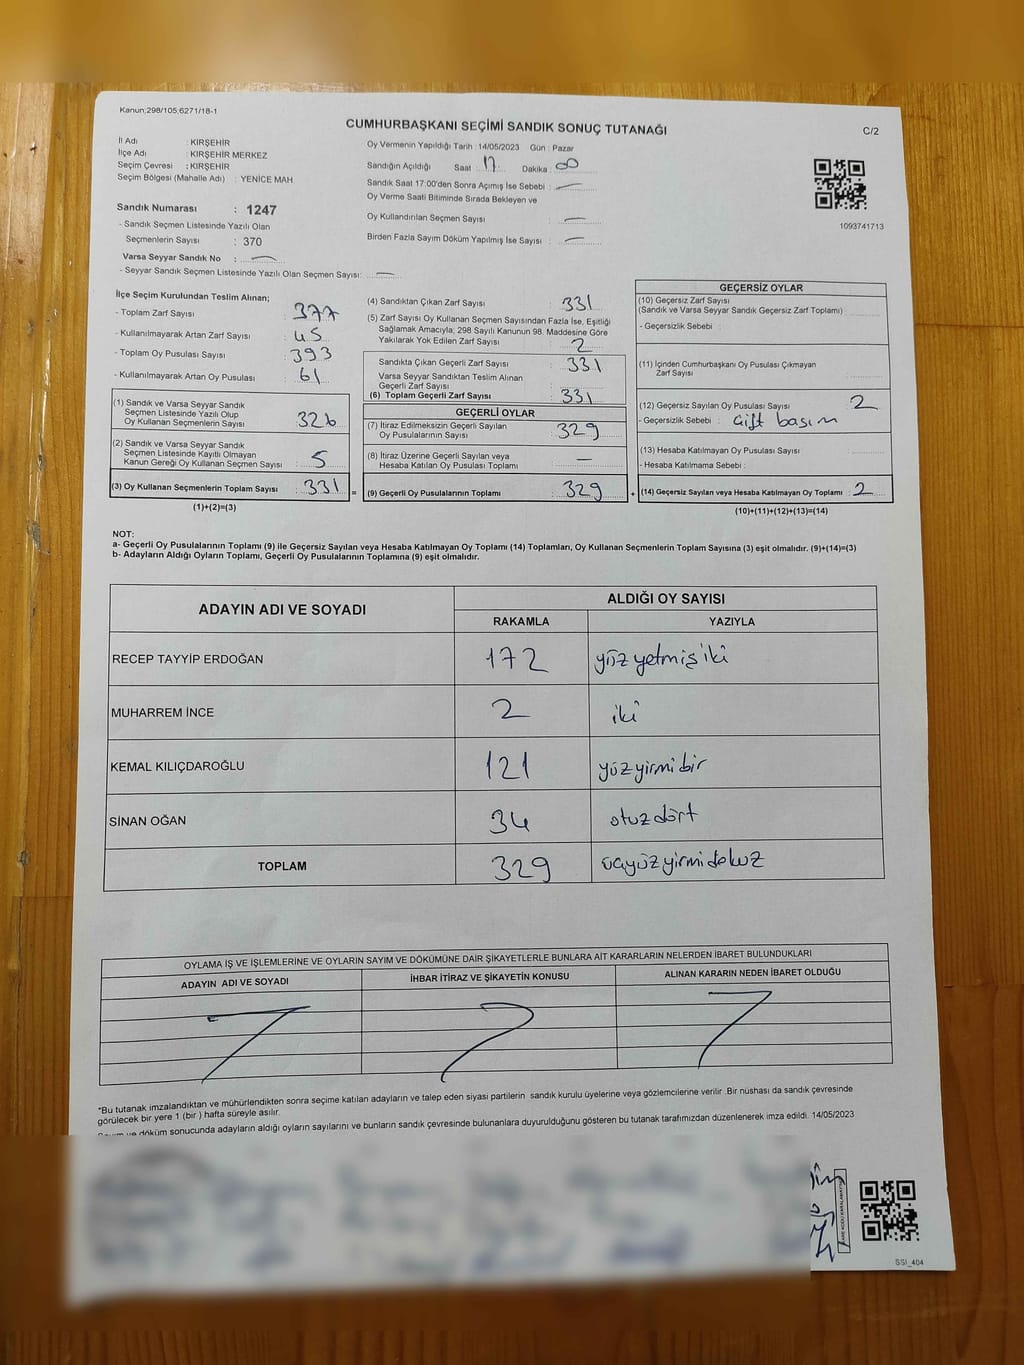 Kanun;298/105;6271/18-1
CUMHURBAŞKANI SEÇİMİ SANDIK SONUÇ TUTANAĞI
C/2
İl Adı : KIRŞEHİR
İlçe Adı : KIRŞEHİR MERKEZ
Seçim Çevresi : KIRŞEHİR
Seçim Bölgesi (Mahalle Adı) : YENİCE MAH.
Sandık Numarası : 1247
- Sandık Seçmen Listesinde Yazılı Olan
Seçmenlerin Sayısı : 370
Varsa Seyyar Sandık No : —
- Seyyar Sandık Seçmen Listesinde Yazılı Olan Seçmen Sayısı: —
Oy Vermenin Yapıldığı Tarih : 14/05/2023 Gün : Pazar
Sandığın Açıldığı Saat 17 Dakika 00
Sandık Saat 17:00'den Sonra Açımış İse Sebebi : —
Oy Verme Saati Bitiminde Sırada Bekleyen ve
Oy Kullandırılan Seçmen Sayısı : —
Birden Fazla Sayım Döküm Yapılmış İse Sayısı : —
1093741713
İlçe Seçim Kurulundan Teslim Alınan;
- Toplam Zarf Sayısı : 377
- Kullanılmayarak Artan Zarf Sayısı : 45
- Toplam Oy Pusulası Sayısı : 393
- Kullanılmayarak Artan Oy Pusulası : 61
(1) Sandık ve Varsa Seyyar Sandık
Seçmen Listesinde Yazılı Olup
Oy Kullanan Seçmenlerin Sayısı : 326
(2) Sandık ve Varsa Seyyar Sandık
Seçmen Listesinde Kayıtlı Olmayan
Kanun Gereği Oy Kullanan Seçmen Sayısı : 5
(3) Oy Kullanan Seçmenlerin Toplam Sayısı : 331 =
(1)+(2)=(3)
(4) Sandıktan Çıkan Zarf Sayısı : 331
(5) Zarf Sayısı Oy Kullanan Seçmen Sayısından Fazla İse, Eşitliği
Sağlamak Amacıyla; 298 Sayılı Kanunun 98. Maddesine Göre
Yakılarak Yok Edilen Zarf Sayısı : 2
Sandıkta Çıkan Geçerli Zarf Sayısı : 331
Varsa Seyyar Sandıktan Teslim Alınan
Geçerli Zarf Sayısı :
(6) Toplam Geçerli Zarf Sayısı : 331
GEÇERLİ OYLAR
(7) İtiraz Edilmeksizin Geçerli Sayılan
Oy Pusulalarının Sayısı : 329
(8) İtiraz Üzerine Geçerli Sayılan veya
Hesaba Katılan Oy Pusulası Toplamı : —
(9) Geçerli Oy Pusulalarının Toplamı : 329 +
GEÇERSİZ OYLAR
(10) Geçersiz Zarf Sayısı
(Sandık ve Varsa Seyyar Sandık Geçersiz Zarf Toplamı) :
- Geçersizlik Sebebi :
(11) İçinden Cumhurbaşkanı Oy Pusulası Çıkmayan
Zarf Sayısı :
(12) Geçersiz Sayılan Oy Pusulası Sayısı : 2
- Geçersizlik Sebebi : Çift basım
(13) Hesaba Katılmayan Oy Pusulası Sayısı :
- Hesaba Katılmama Sebebi :
(14) Geçersiz Sayılan veya Hesaba Katılmayan Oy Toplamı : 2
(10)+(11)+(12)+(13)=(14)
NOT:
a- Geçerli Oy Pusulalarının Toplamı (9) ile Geçersiz Sayılan veya Hesaba Katılmayan Oy Toplamı (14) Toplamları, Oy Kullanan Seçmenlerin Toplam Sayısına (3) eşit olmalıdır. (9)+(14)=(3)
b- Adayların Aldığı Oyların Toplamı, Geçerli Oy Pusulalarının Toplamına (9) eşit olmalıdır.
ADAYIN ADI VE SOYADI ALDIĞI OY SAYISI
RAKAMLA YAZIYLA
RECEP TAYYİP ERDOĞAN 172 yüz yetmiş iki
MUHARREM İNCE 2 iki
KEMAL KILIÇDAROĞLU 121 yüz yirmi bir
SİNAN OĞAN 34 otuz dört
TOPLAM 329 üçyüz yirmi dokuz
OYLAMA İŞ VE İŞLEMLERİNE VE OYLARIN SAYIM VE DÖKÜMÜNE DAİR ŞİKAYETLERLE BUNLARA AİT KARARLARIN NELERDEN İBARET BULUNDUKLARI
ADAYIN ADI VE SOYADI İHBAR İTİRAZ VE ŞİKAYETİN KONUSU ALINAN KARARIN NEDEN İBARET OLDUĞU
*Bu tutanak imzalandıktan ve mühürlendikten sonra seçime katılan adayların ve talep eden siyasi partilerin sandık kurulu üyelerine veya gözlemcilerine verilir. Bir nüshası da sandık çevresinde
görülecek bir yere 1 (bir ) hafta süreyle asılır.
Sayım ve döküm sonucunda adayların aldığı oyların sayılarını ve bunların sandık çevresinde bulunanlara duyurulduğunu gösteren bu tutanak tarafımızdan düzenlenerek imza edildi. 14/05/2023
SSI_404